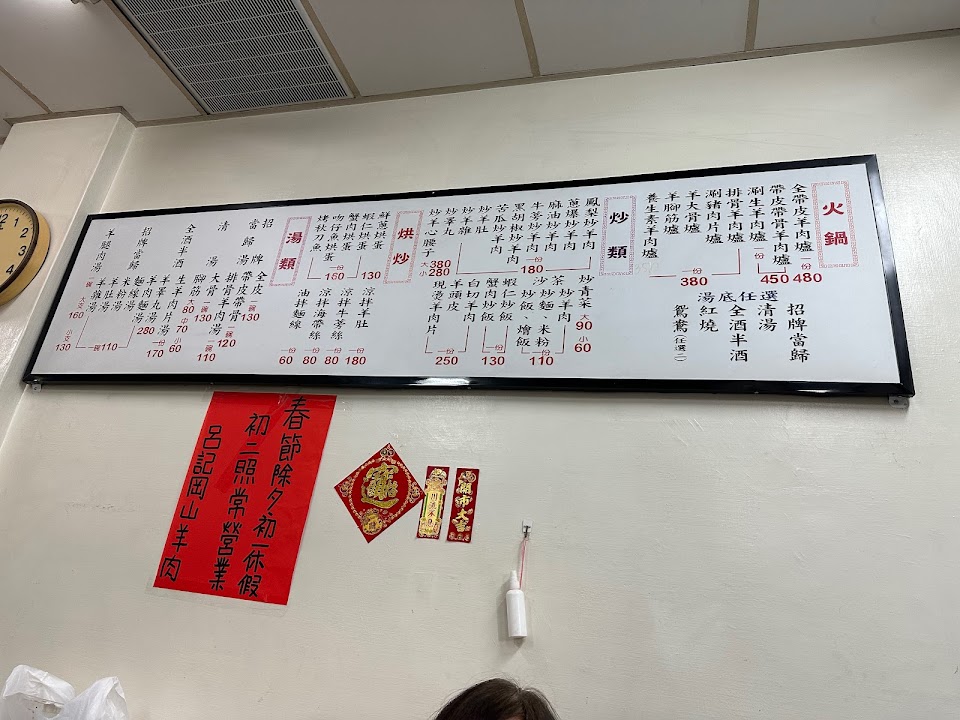 火鍋
全帶皮羊肉爐
480
帶皮帶骨羊肉爐
450
涮生羊肉爐
排骨羊肉爐
涮豬肉片爐
羊大骨爐
羊腳筋爐
養生素羊肉爐
一份
380
湯底任選
招牌當歸
清湯
全酒半酒
紅燒
鴛鴦(任選二)
炒類
鳳梨炒羊肉
蔥爆炒羊肉
麻油炒羊肉
牛蒡炒羊肉
黑胡椒炒羊肉
苦瓜炒羊肉
炒羊肚
炒羊雜
一份
180
炒睪丸
炒羊心腰子
大
380
小
280
炒青菜
大
90
小
60
茶炒羊肉
沙炒麵、米粉
炒飯、燴飯
一份
110
蝦仁炒飯
蟹肉炒飯
一份
130
白切羊肉
羊頭皮
現燙羊肉片
一份
250
烘炒
鮮蔥烘蛋
蝦仁烘蛋
130
蟹肉烘蛋
吻仔魚烘蛋
烤秋刀魚
一份
180
涼拌羊肚
一份
180
涼拌牛蒡絲
一份
80
涼拌海帶絲
一份
80
油拌麵線
一份
60
湯類
招牌當歸
全皮
帶皮帶骨
一碗
130
清湯
排骨羊肉湯
一碗
120
大骨湯
一碗
110
全酒半酒
腳筋
一碗
130
生羊肉片湯
大
80
中
70
小
60
羊睪丸湯
一份
170
招牌當歸
羊肉麵
280
麵線湯
米粉湯
羊肚湯
羊雜湯
一碗
110
羊腿肉湯
一碗
大支
160
小支
130
春節除夕初一休假
初二照常營業
呂記岡山羊肉
開市大吉
12
1
2
3
4